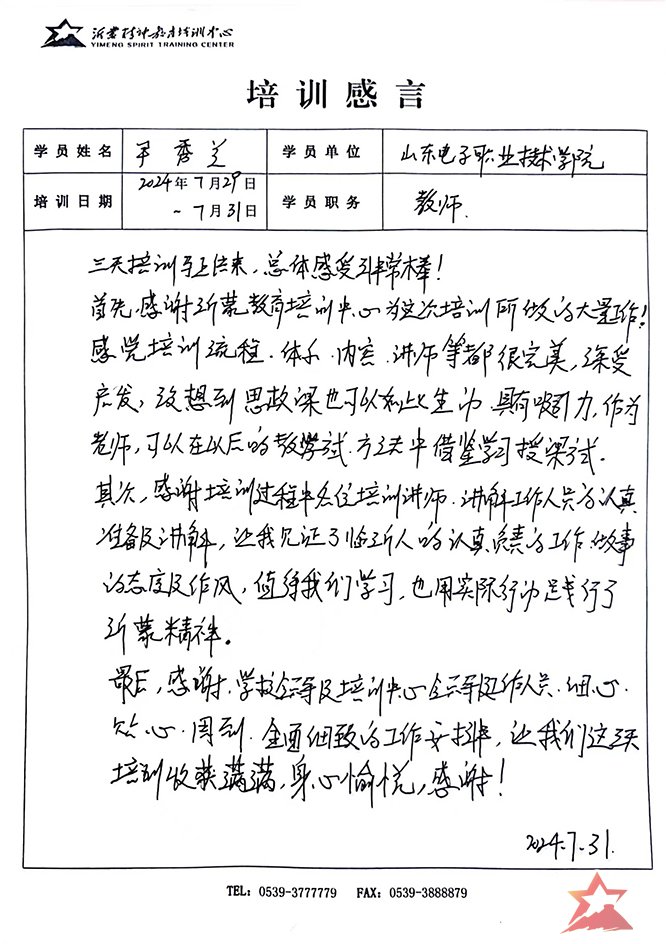 沂蒙精神教育培训中心
YIMENG SPIRIT TRAINING CENTER
培训感言
学员姓名 秀兰 学员单位 山东电子职业技术学院
培训日期 2024年7月29日 ~7月31日 学员职务 教师.
三天培训马上结束，总体感受非常棒！
首先，感谢沂蒙教育培训中心为这次培训所做的大量工作！
感觉培训流程、体系、内容、讲师等都很完美，深受
启发，没想到思政课也可以如此生动、具有吸引力，作为
老师，可以在以后的教学试、方法中借鉴学习授课试。
其次，感谢培训过程中各位培训讲师、讲解工作人员的认真
准备及讲解，让我见证了临沂人的认真负责的工作、做事
的态度及作风，值得我们学习，也用实际行动践行了
沂蒙精神。
最后，感谢学校领导及培训中心领导及工作人员、细心、
心、周到、全面细致的工作安排，让我们这三天
培训收获满满，身心愉悦，感谢！
2024.7.31.
TEL: 0539-3777779 FAX: 0539-3888879